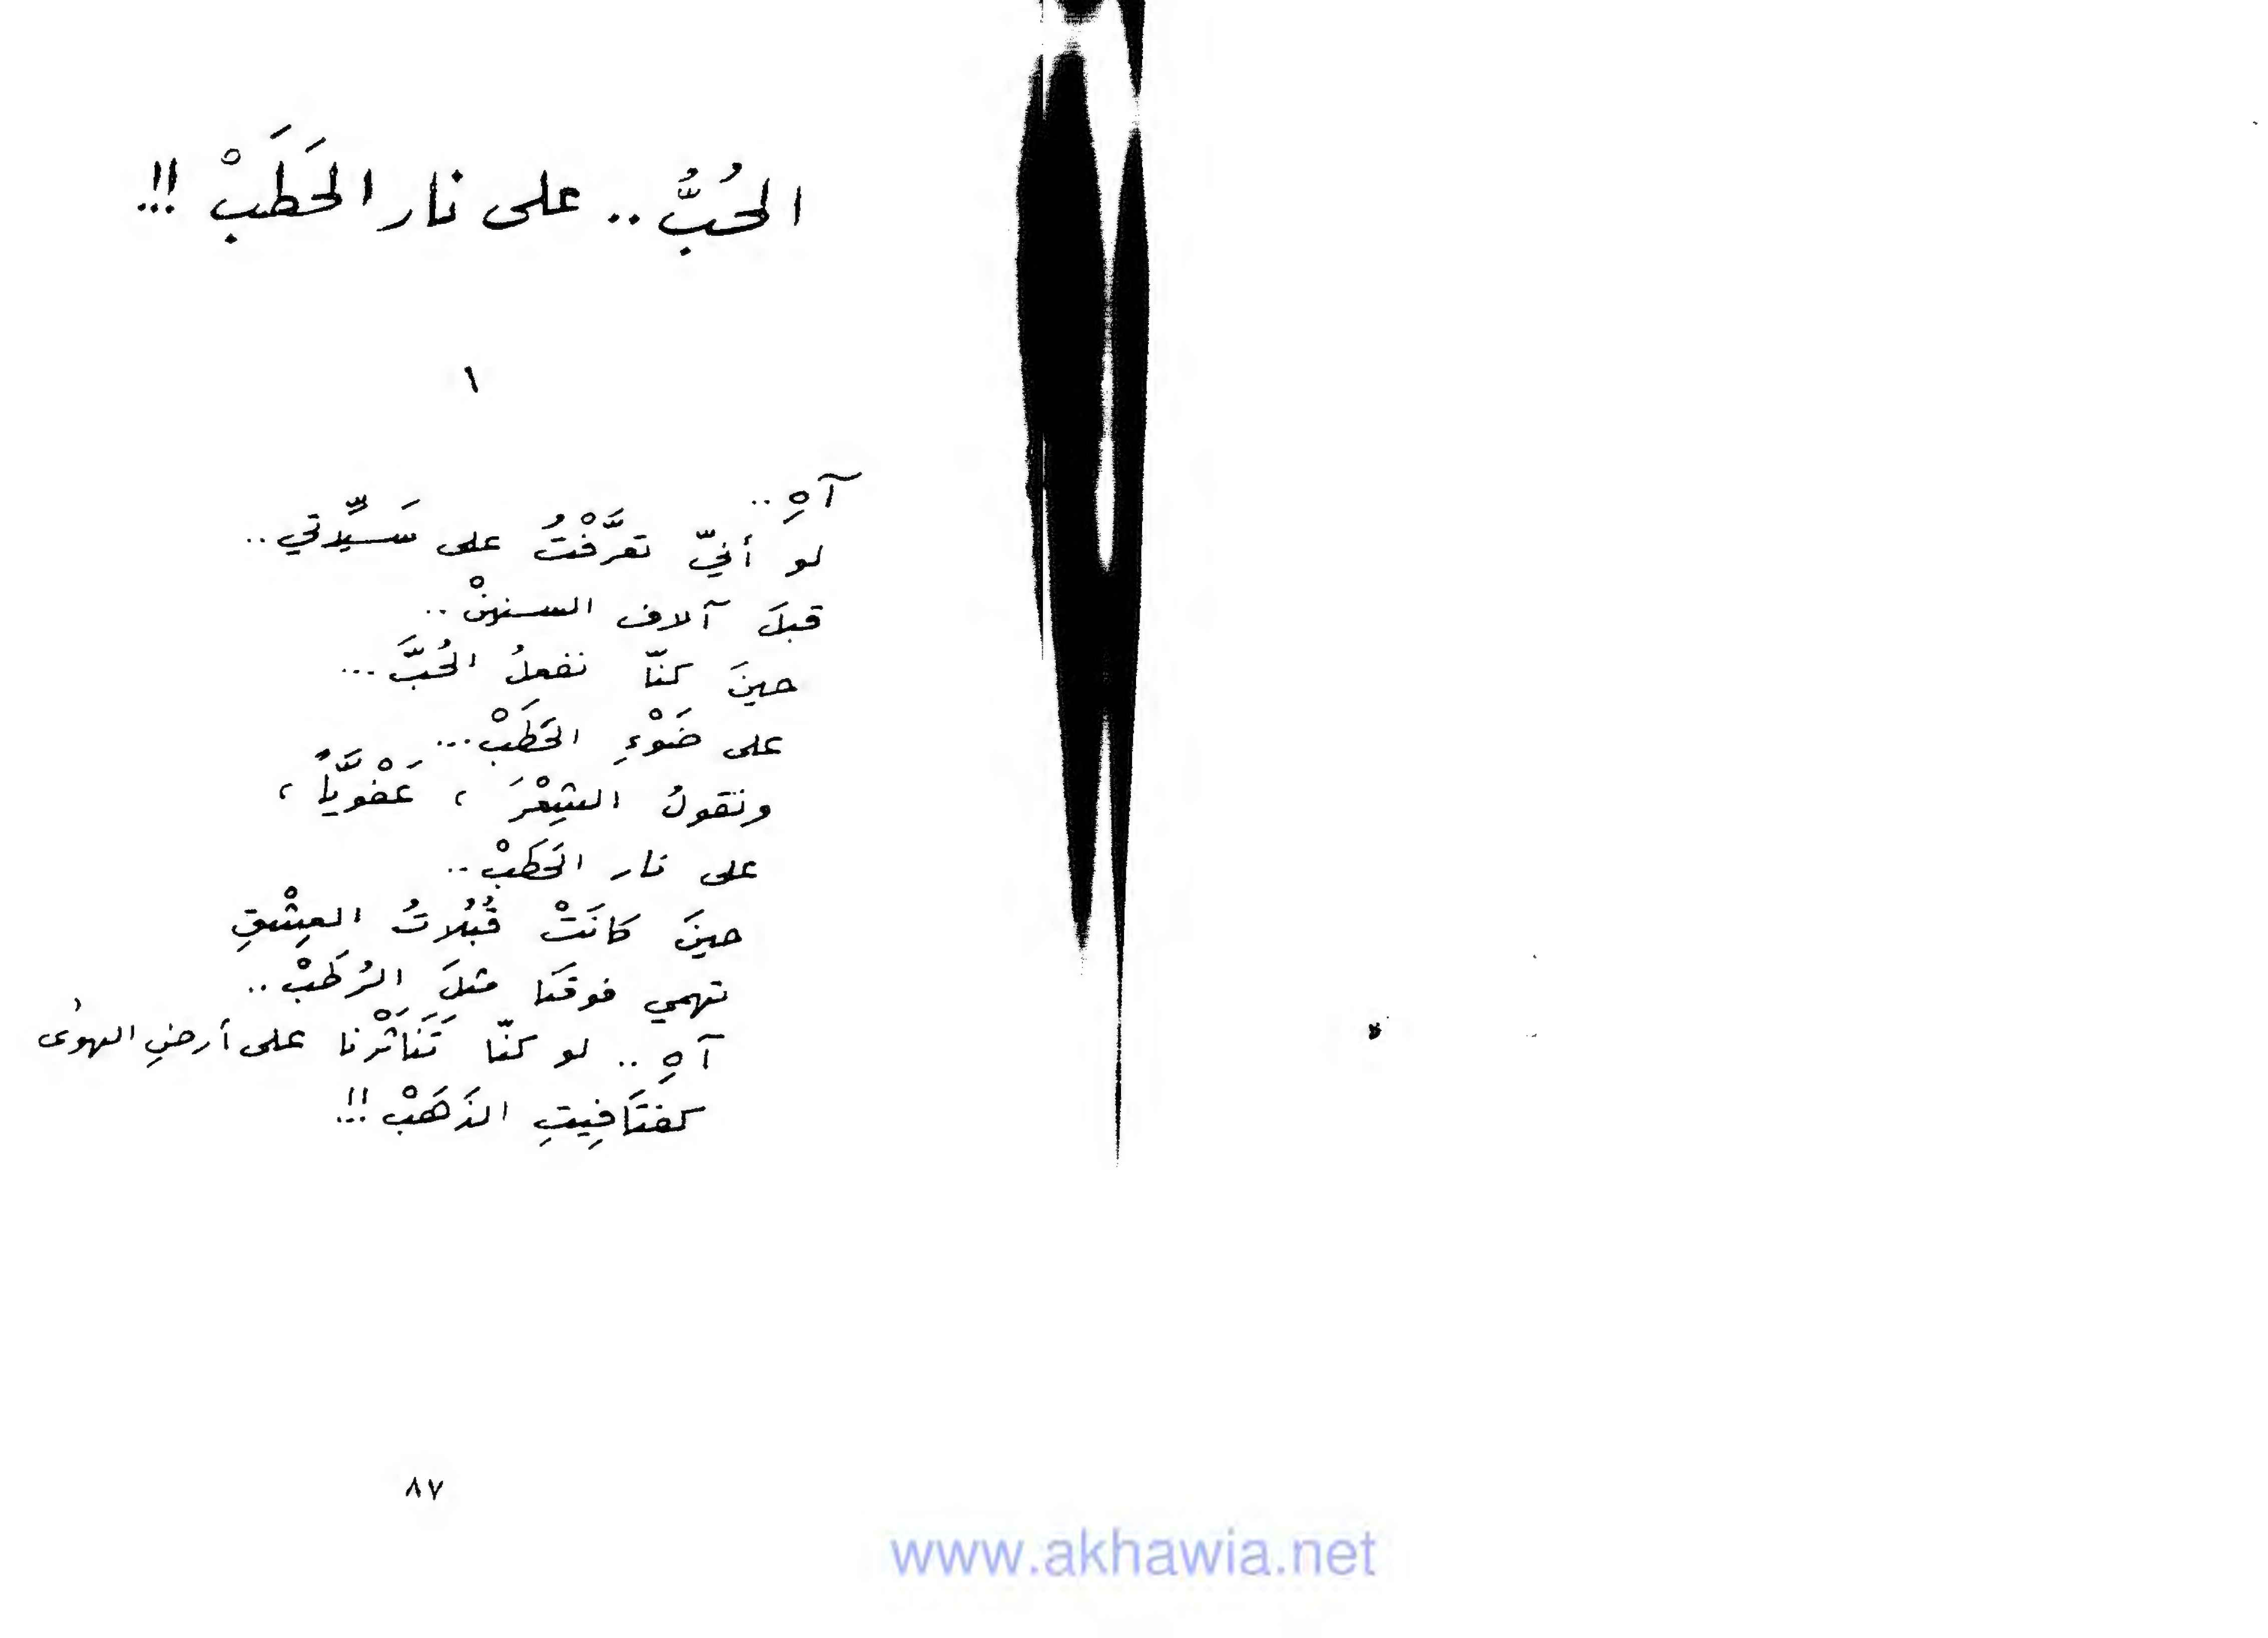 الحُبُّ .. على نار الحَطَبْ !!..
١
آهِ ..
لو أنيّ تعرَّفْتُ على سَيِّدتي ..
قبلَ آلاف السنينْ ..
حينَ كنّا نفعلُ الحُبَّ ...
على ضَوْءِ الحَطَبْ ...
ونقولُ الشِعْرَ ، عَفْويَّاً ،
على نار الحَطَبْ ..
حينَ كانَتْ قُبُلاتُ العِشْقِ
تهمي فوقَنا مثلَ الرُطَبْ ..
آهِ .. لو كنّا تَنَاثَرْنا على أرضِ الهوى
كفتَافِيتِ الذَهَبْ !!..
٨٧
www.akhawia.net